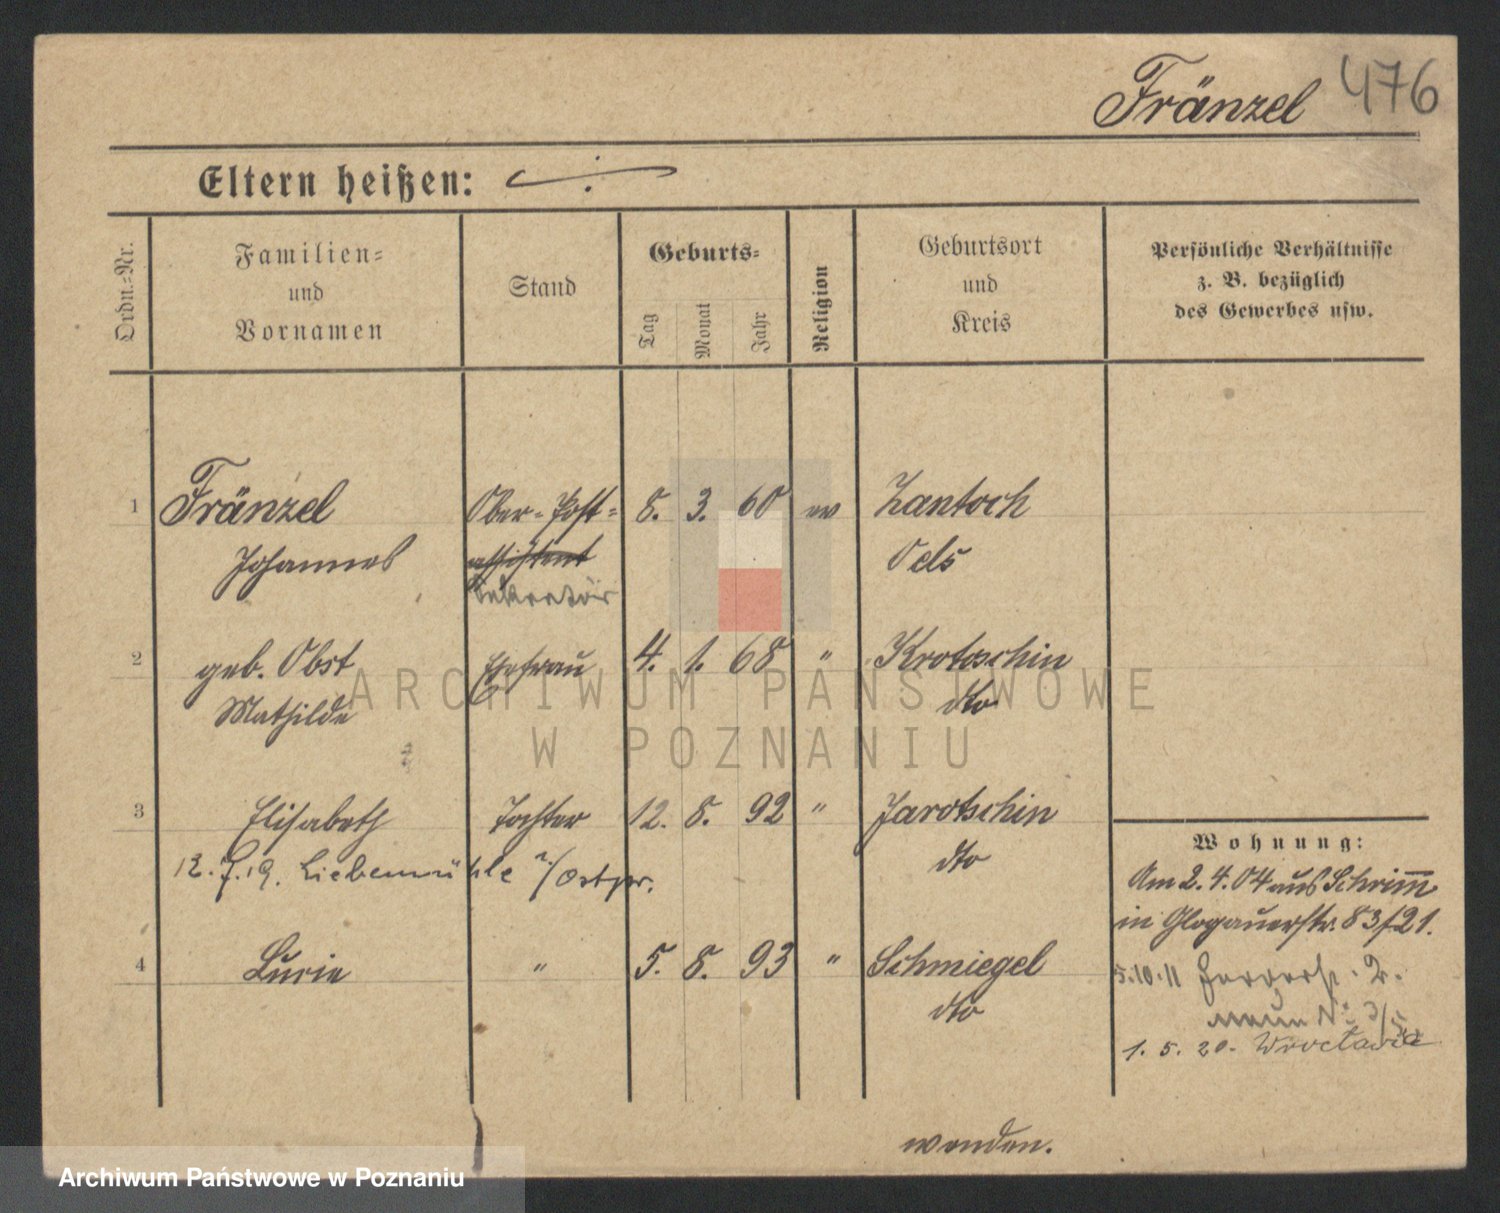 Fränzel 476
Eltern heißen:
Ordn.-Nr.
Familien-
und
Vornamen
Stand
Geburts-
Tag
Monat
Jahr
Religion
Geburtsort
und
Kreis
Persönliche Verhältnisse
z. B. bezüglich
des Gewerbes usw.
1 Fränzel Ober-Post- 8. 3. 60 ev Zantoch
Johannes assistent Oels
Sekretär
2 geb. Obst Ehefrau 4. 1. 68 " Krotoschin
Mathilde dto
3 Elisabeth Tochter 12. 8. 92 " Jarotschin
dto
12. 7. 19. Liebemühle /Ostpr.
4 Lucie " 5. 8. 93 " Schmiegel
dto
Wohnung:
Am 2. 4. 04 aus Schrimm
in Glogauerstr. 83/21.
5.10.11 2.
3/5
1. 5. 20. Wrocławia
wenden.
ARCHIWUM PAŃSTWOWE
W POZNANIU
Archiwum Państwowe w Poznaniu